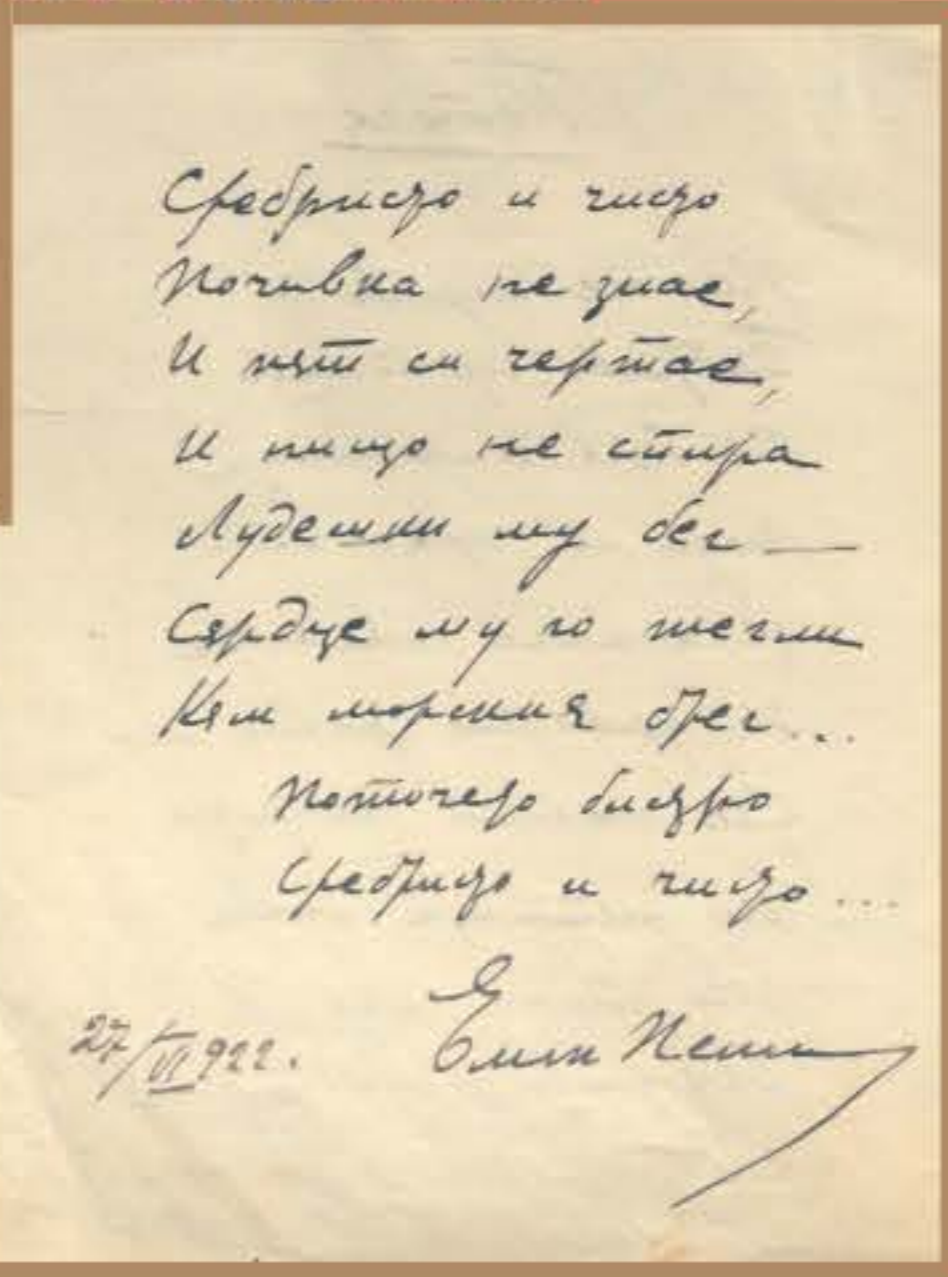 Сребристо и чисто
Почивка не знае,
И път си чертае,
И нищо не спира
Лудешки му бег —
Сърдце му го тегли
Към морския брег...
Поточето бистро
Сребристо и чисто ...
27/VI 922.
Емил